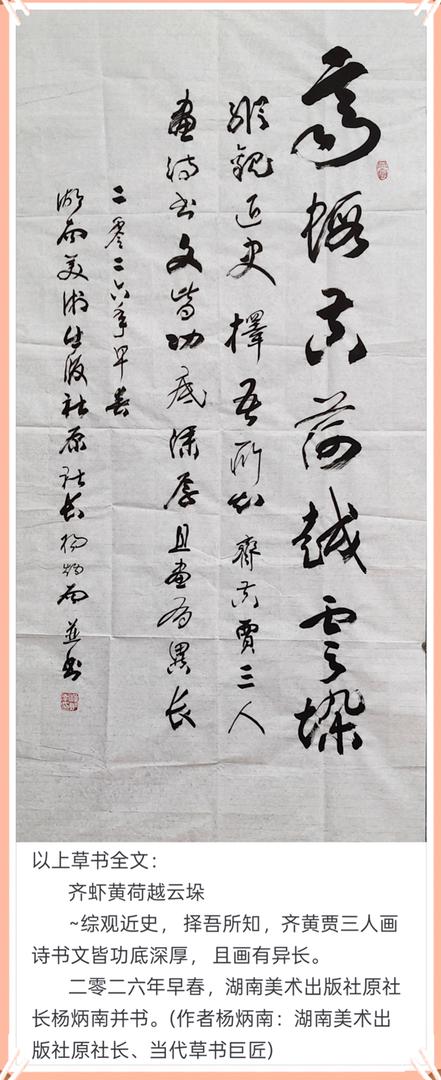 齊蝦黃荷越雲垛
綜觀近史擇吾所知齊黃賈三人
畫詩书文皆功底深厚且畫有異长
二零二六年早春
湖南美術出版社原社长楊炳南並书
以上草书全文：
齐虾黄荷越云垛
~综观近史，择吾所知，齐黄贾三人画
诗书文皆功底深厚，且画有异长。
二零二六年早春，湖南美术出版社原社
长杨炳南并书。(作者杨炳南：湖南美术出
版社原社长、当代草书巨匠)